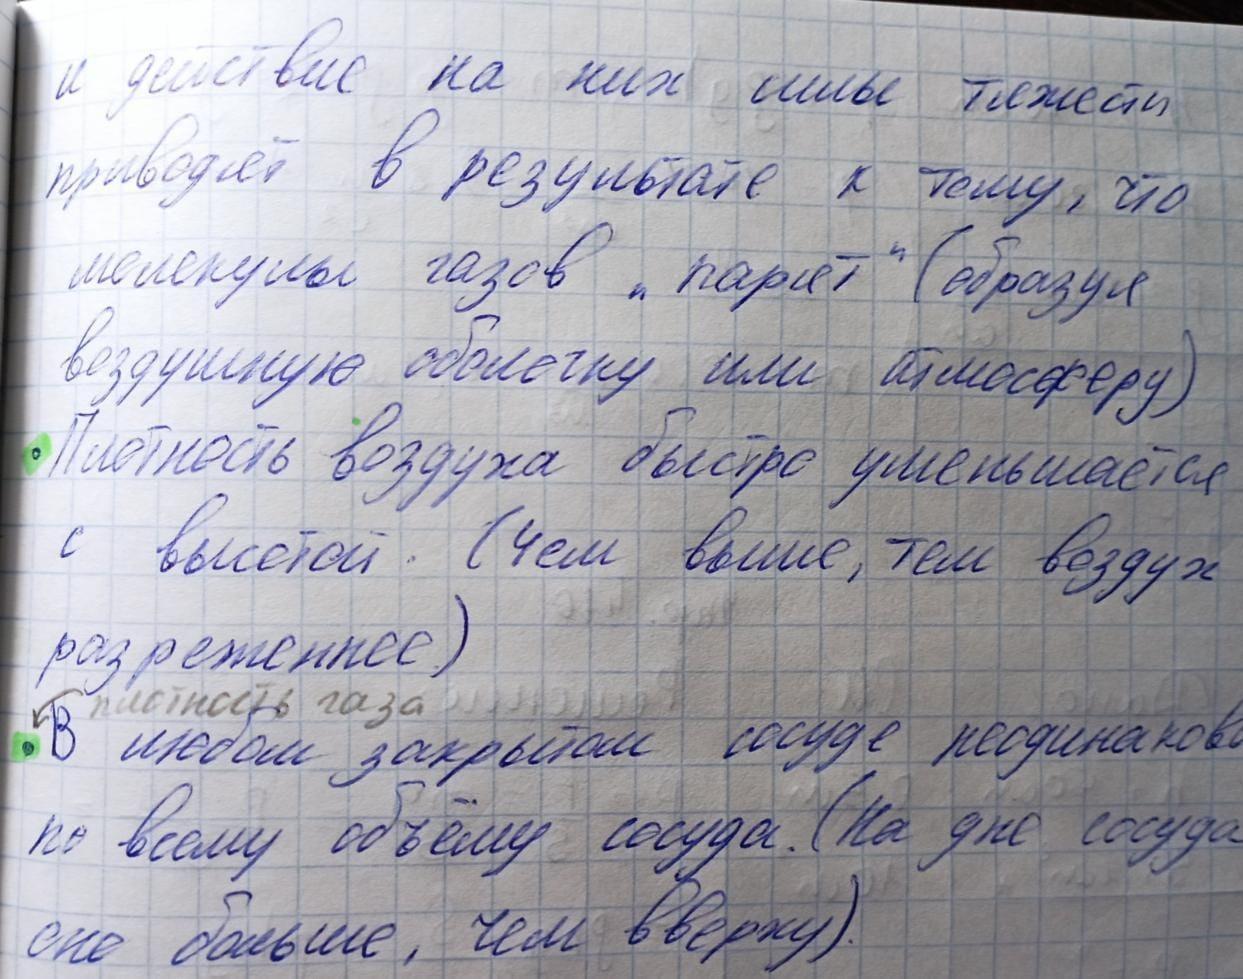 и действие на них силы тяжести
приводят в результате к тому, что
молекулы газов „парят" (образуя
воздушную оболочку или атмосферу)
Плотность воздуха быстро уменьшается
с высотой. (Чем выше, тем воздух
разреженнее)
плотность газа
В любом закрытом сосуде неодинакова
по всему объёму сосуда. (На дне сосуда
оно больше, чем вверху).